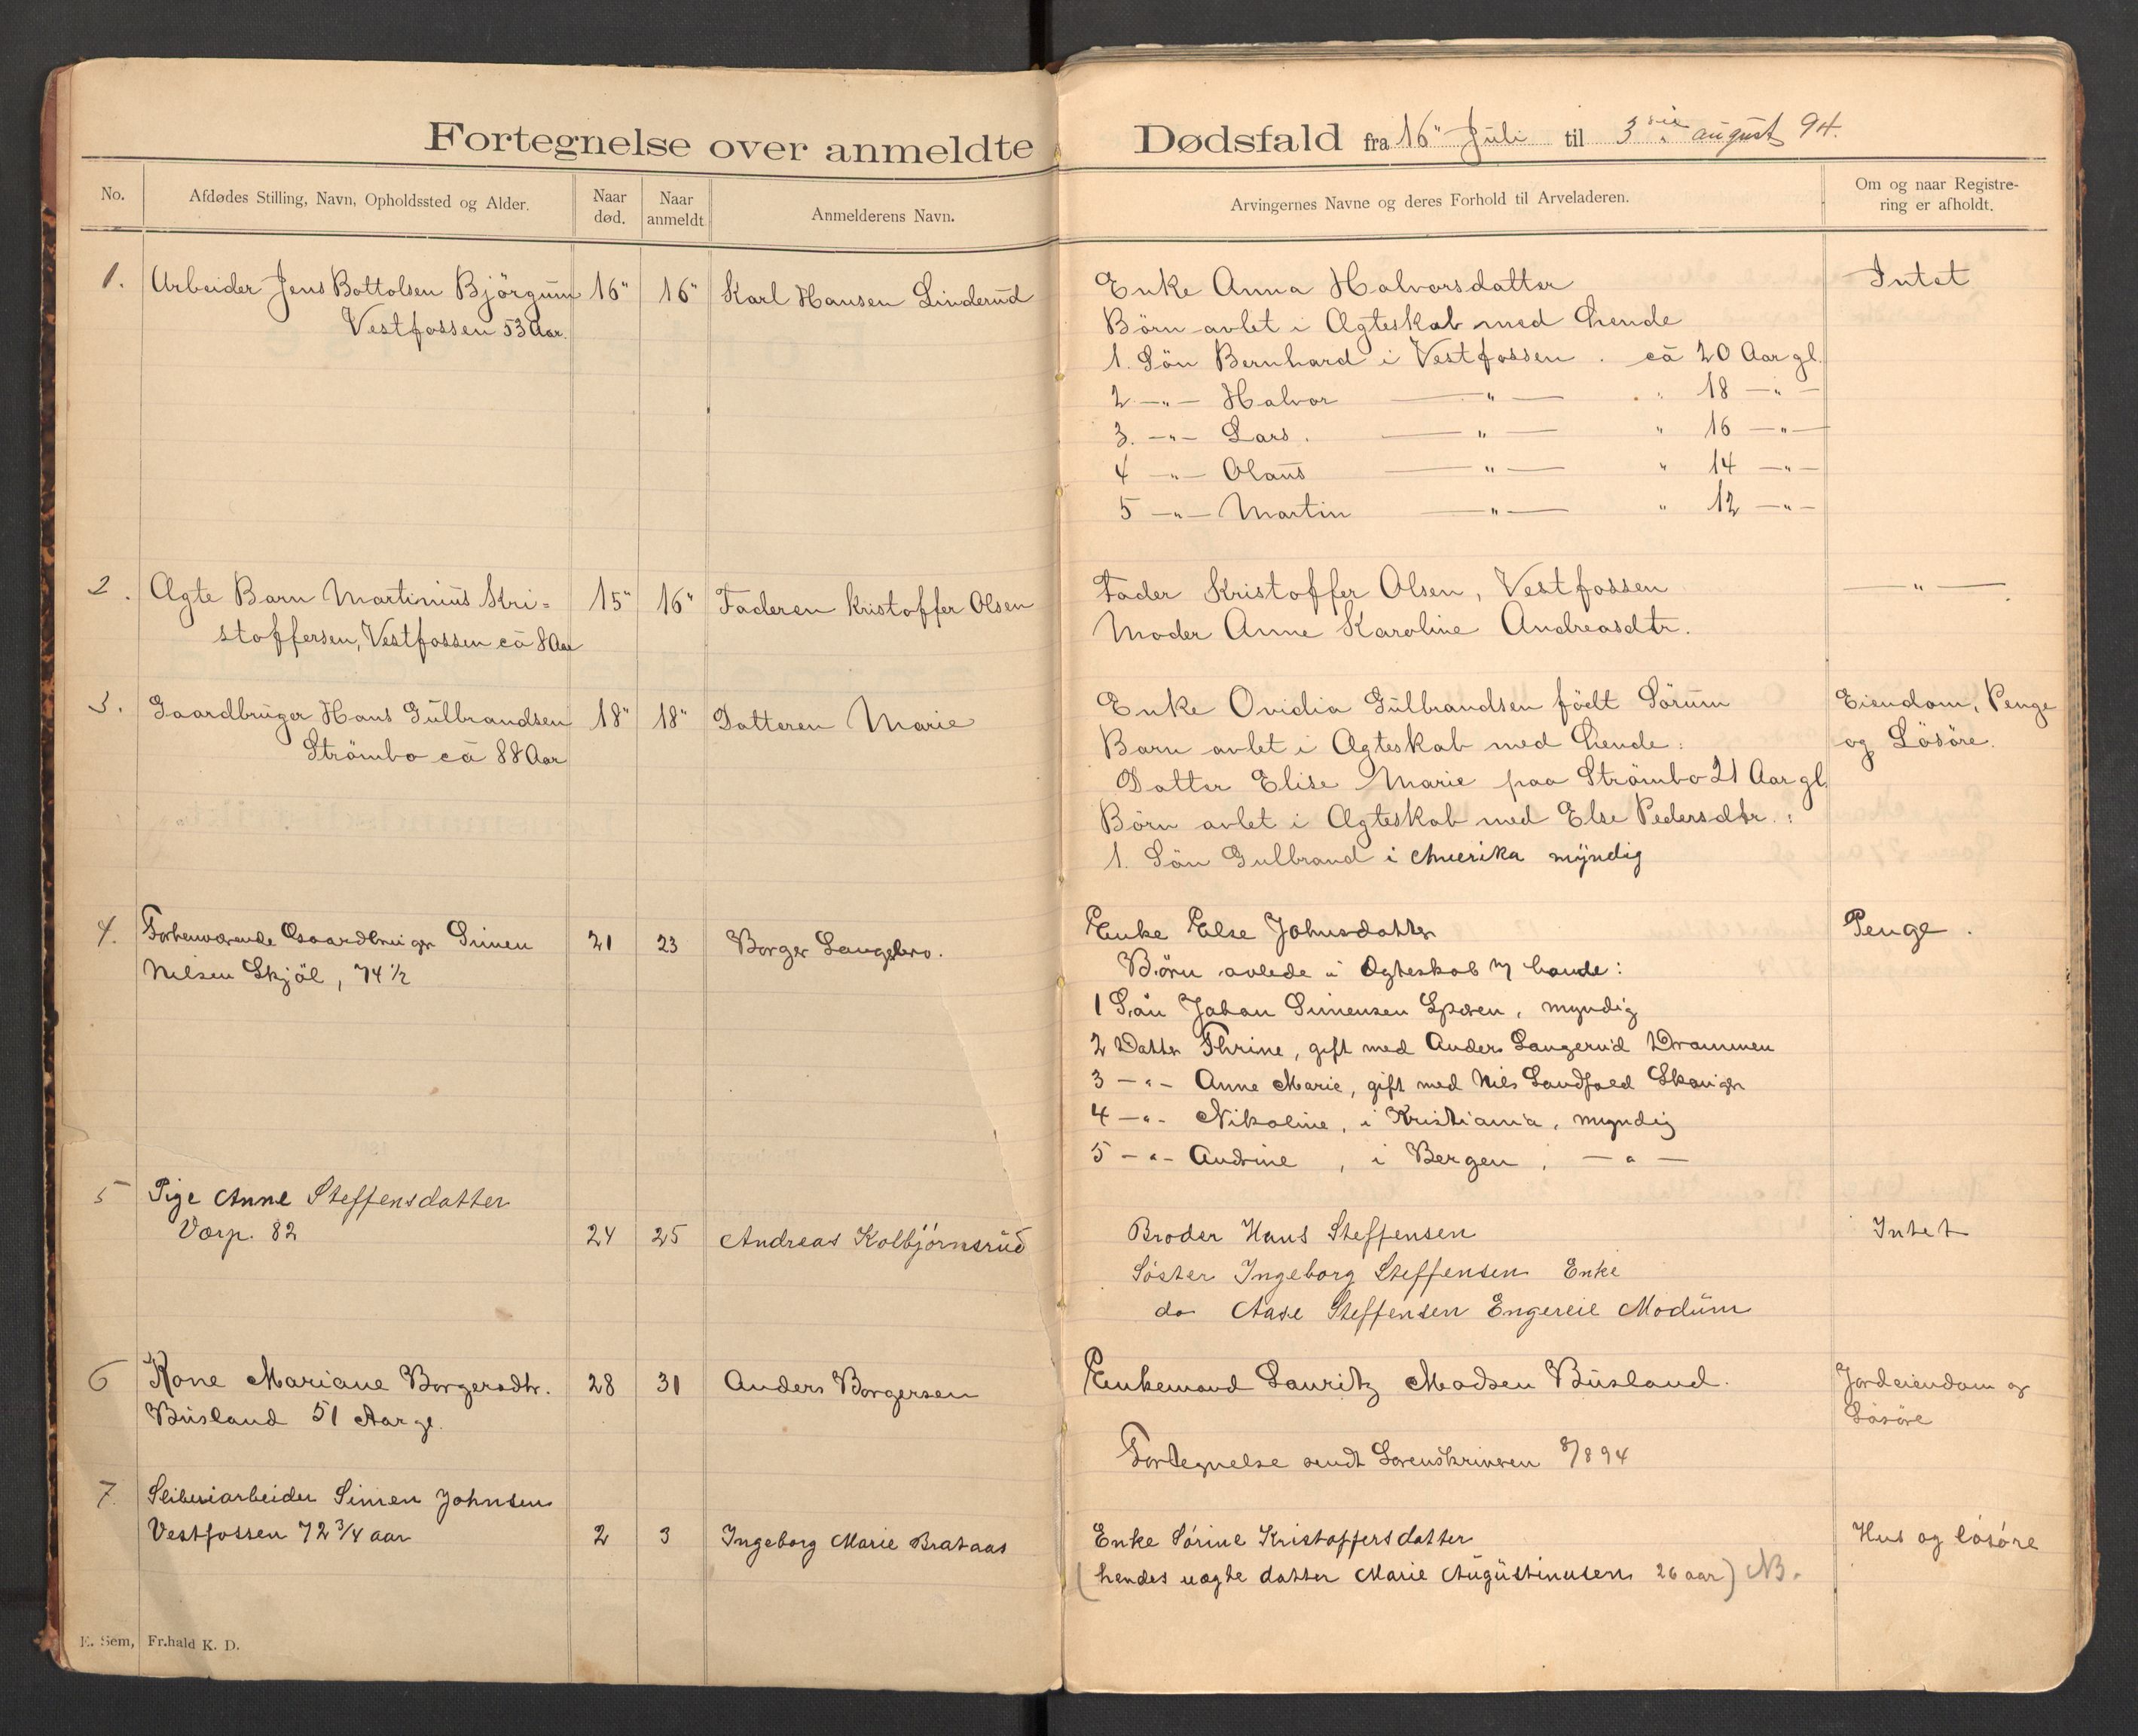 Fortegnelse over anmeldte Dødsfald fra 16" Juli til 3die august 94.
No. Afdødes Stilling, Navn, Opholdssted og Alder. Naar død. Naar anmeldt Anmelderens Navn. Arvingernes Navne og deres Forhold til Arveladeren. Om og naar Registrering er afholdt.
1. Arbeider Jens Bottolsen Björgum 16" 16" Karl Hansen Linderud
Vestfossen 53 Aar.
Enke Anna Halvorsdatter Intet
Börn avlet i Ægteskab med hende
1. Sön Bernhard i Vestfossen . ca 20 Aar gl.
2 —"— Halvor —"— " 18 —"—
3. —"— Lars. —"— " 16 —"—
4 —"— Olaus —"— " 14 —"—
5 —"— Martin —"— " 12 —"—
2. Ægte Barn Martinius Kri=
stoffersen, Vestfossen ca 8 Aar
15" 16" Faderen Kristoffer Olsen
Fader Kristoffer Olsen, Vestfossen —"—
Moder Anne Karoline Andreasdtr.
3. Gaardbruger Hans Gulbrandsen 18" 18" Datteren Marie
Strömbo ca 88 Aar
Enke Ovidia Gulbrandsen födt Sörum Eiendom, Penge
Barn avlet i Ægteskab med hende: og Lösöre.
Datter Elise Marie paa Strömbo 21 Aar gl
Börn avlet i Ægteskab med Else Pedersdtr. :
1. Sön Gulbrand i Amerika myndig
4. Forhenværende Gaardbruger Simen 21 23 Borger Langebro.
Nilsen Skjöl, 74 1/2
Enke Else Johnsdatter Penge.
Börn avlede i Ægteskab m/ hende:
1 Sön Johan Simensen Speren, myndig
2 Datter Thrine, gift med Anders Langerud Drammen
3 —"— Anne Marie, gift med Nils Sandfoed Skouger
4 —"— Nikoline, i Kristiania, myndig
5 —"— Andrine, i Bergen, —"—
5 Pige Anne Steffensdatter
Vorp. 82 24 25 Andreas Kolbjörnsrud
Broder Hans Steffensen Intet
Söster Ingeborg Steffensen Enke
do Aase Steffensen Engereie Modum
6 Kone Mariane Borgersdtr. 28 31 Anders Borgersen
Busland 51 Aar gl.
Enkemand Lauritz Madsen Busland. Jordeiendom og
Lösöre
Fortegnelse sendt Sorenskriveren 8/8 94
7. Sliberiarbeider Simen Johnsen
Vestfossen 72 3/4 aar 2 3 Ingeborg Marie Brataas
Enke Sörine Kristoffersdatter Hus og lösöre
(hendes uægte datter Marie Augustinusen 26 aar) NB.
E. Sem, Fr.hald K. D.